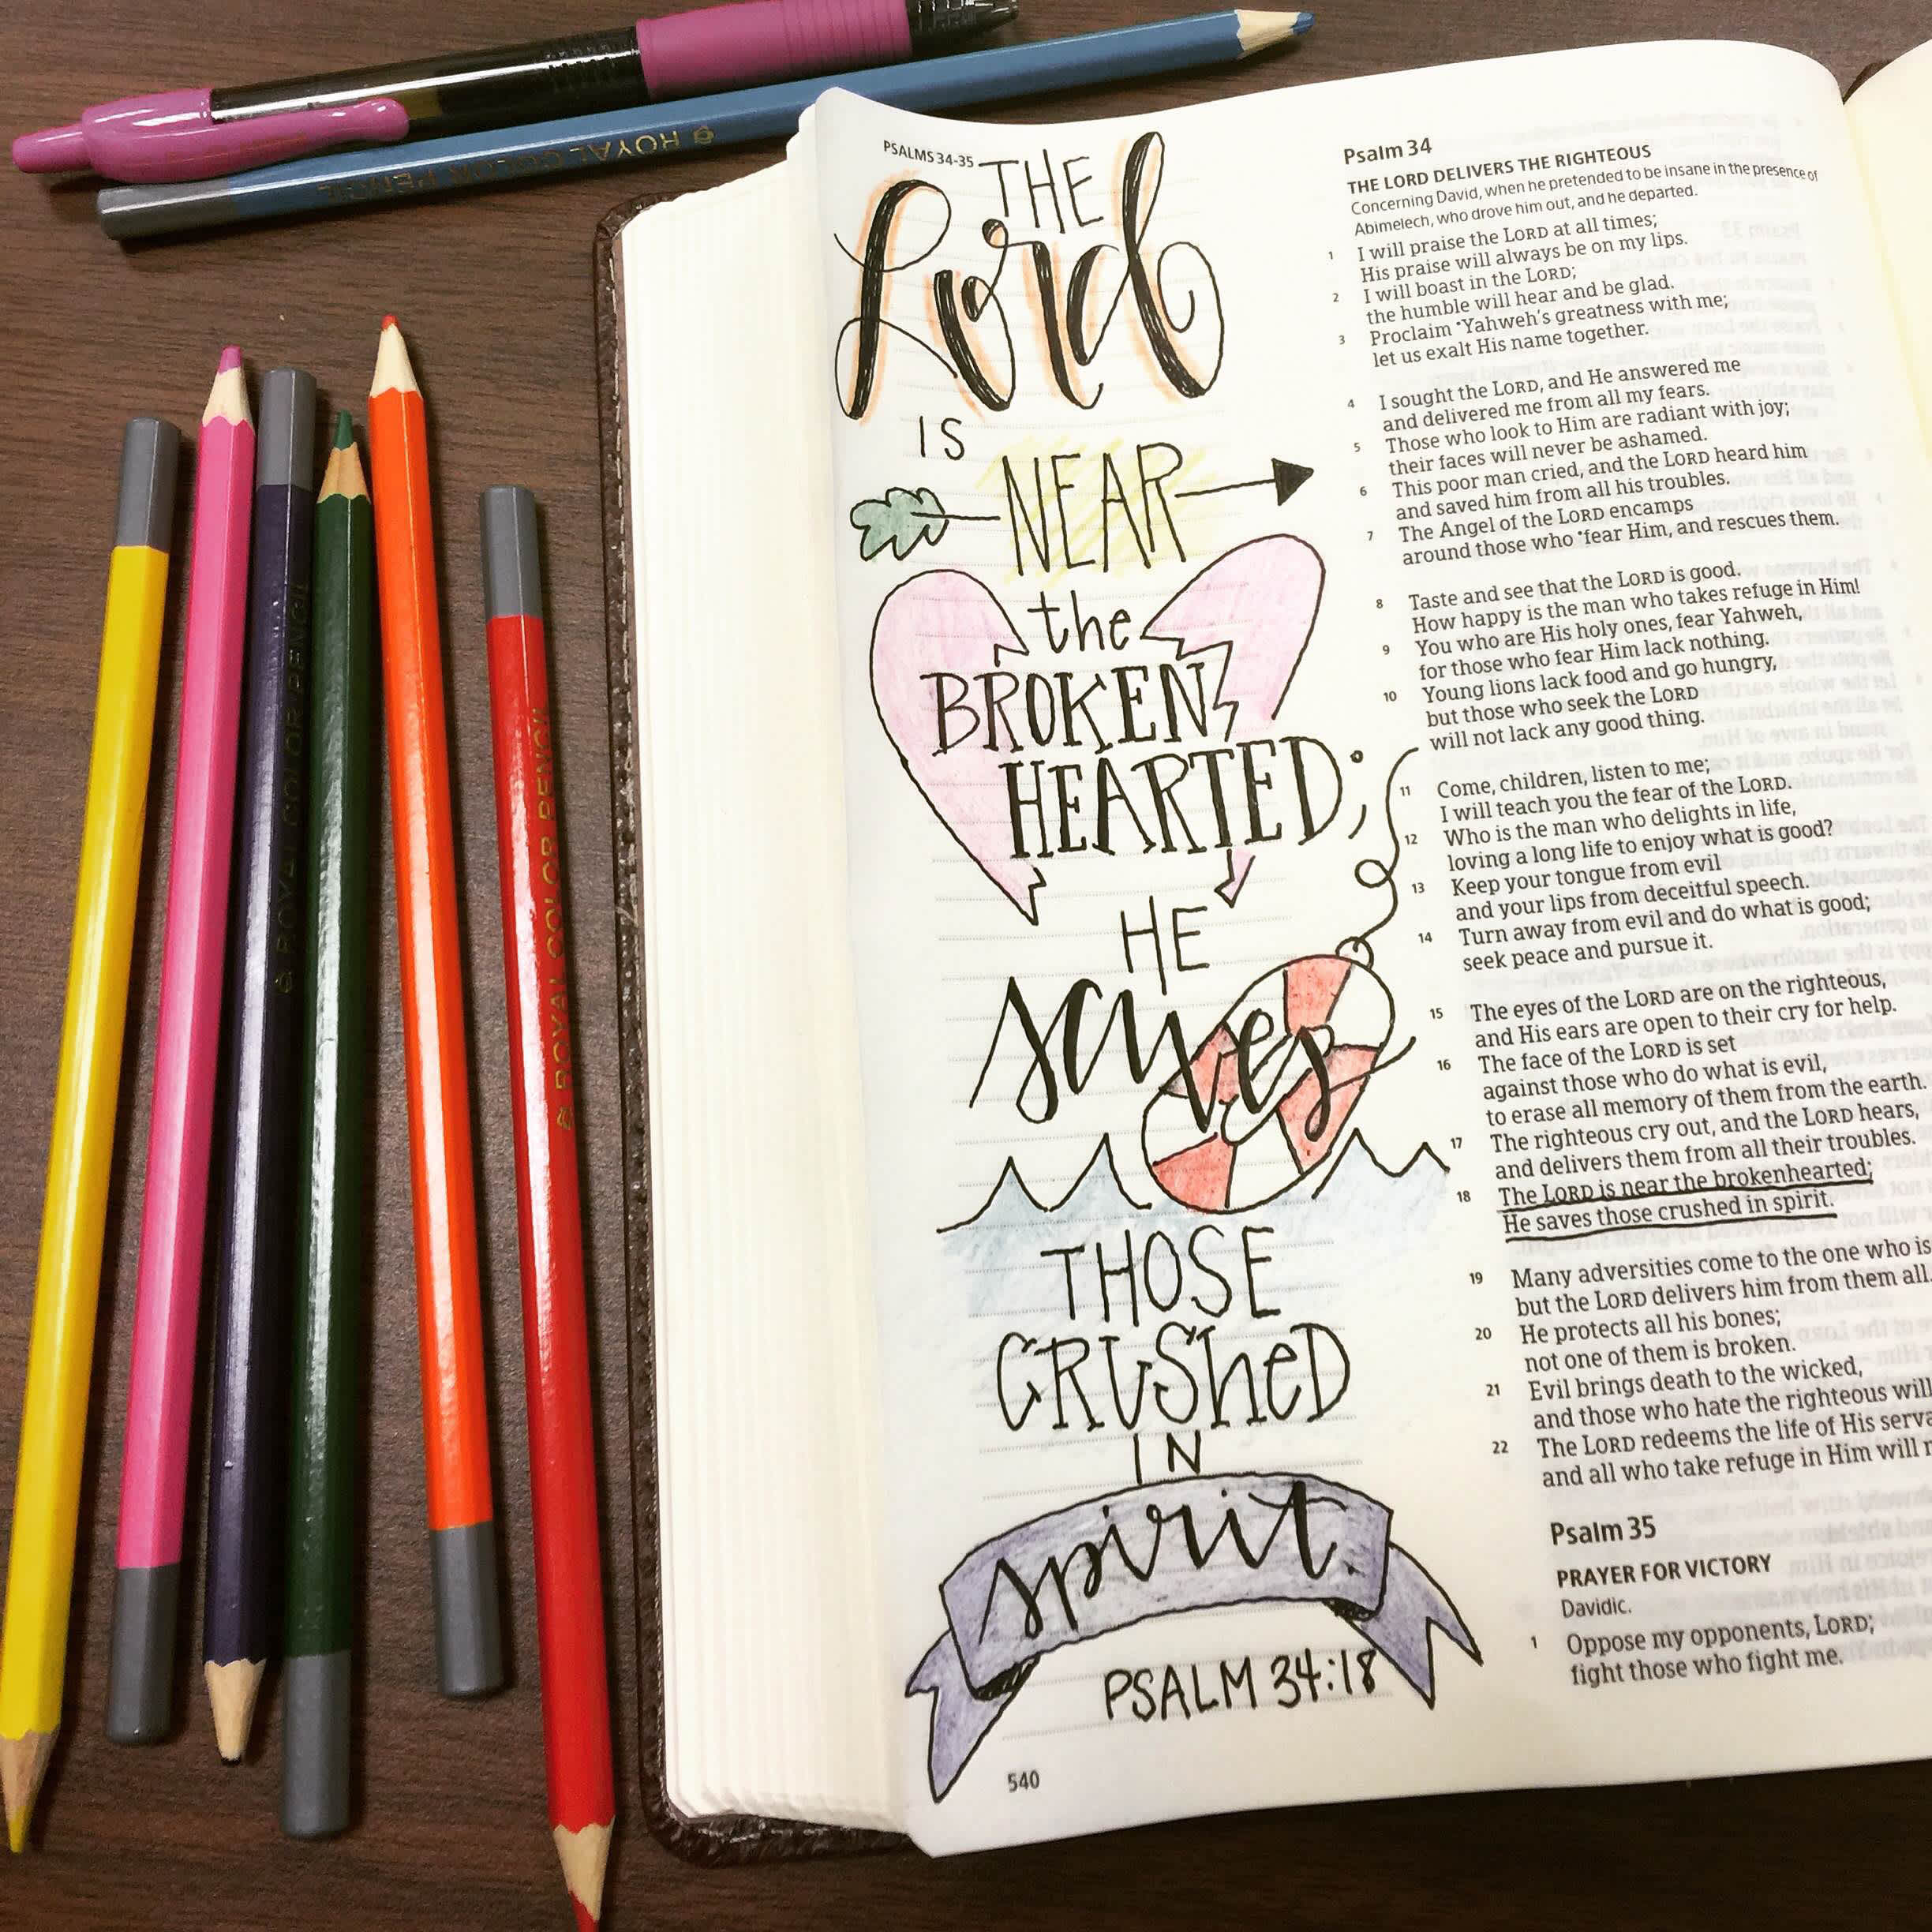 ROYAL COLOR PENCIL
ROYAL COLOR PENCIL
ROYAL COLOR PENCIL
PSALMS 34-35
THE
Lord
IS
NEAR
the
BROKEN
HEARTED;
HE
saves
THOSE
CRUSHED
IN
spirit.
PSALM 34:18
540
Psalm 34
THE LORD DELIVERS THE RIGHTEOUS
Concerning David, when he pretended to be insane in the presence of
Abimelech, who drove him out, and he departed.
1 I will praise the LORD at all times;
His praise will always be on my lips.
2 I will boast in the LORD;
the humble will hear and be glad.
3 Proclaim •Yahweh's greatness with me;
let us exalt His name together.
4 I sought the LORD, and He answered me
and delivered me from all my fears.
5 Those who look to Him are radiant with joy;
their faces will never be ashamed.
6 This poor man cried, and the LORD heard him
and saved him from all his troubles.
7 The Angel of the LORD encamps
around those who •fear Him, and rescues them.
8 Taste and see that the LORD is good.
How happy is the man who takes refuge in Him!
9 You who are His holy ones, fear Yahweh,
for those who fear Him lack nothing.
10 Young lions lack food and go hungry,
but those who seek the LORD
will not lack any good thing.
11 Come, children, listen to me;
I will teach you the fear of the LORD.
12 Who is the man who delights in life,
loving a long life to enjoy what is good?
13 Keep your tongue from evil
and your lips from deceitful speech.
14 Turn away from evil and do what is good;
seek peace and pursue it.
15 The eyes of the LORD are on the righteous,
and His ears are open to their cry for help.
16 The face of the LORD is set
against those who do what is evil,
to erase all memory of them from the earth.
17 The righteous cry out, and the LORD hears,
and delivers them from all their troubles.
18 The LORD is near the brokenhearted;
He saves those crushed in spirit.
19 Many adversities come to the one who is
but the LORD delivers him from them all.
20 He protects all his bones;
not one of them is broken.
21 Evil brings death to the wicked,
and those who hate the righteous will
22 The LORD redeems the life of His
and all who take refuge in Him will
Psalm 35
PRAYER FOR VICTORY
Davidic.
1 Oppose my opponents, LORD;
fight those who fight me.